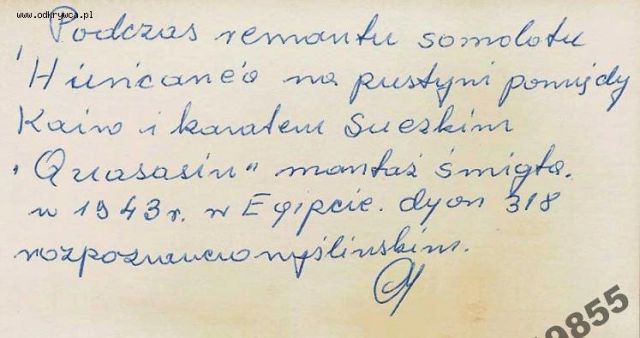 www.odkrywca.pl
Podczas remontu somolotu
'Huricane'a na pustyni pomiędy
Kairo i kanałem Sueskim
"Quasasin" montaż śmigła.
w 1943 r. w Egipcie. dyon 318
rozpoznawczo myśliwskim.
19855